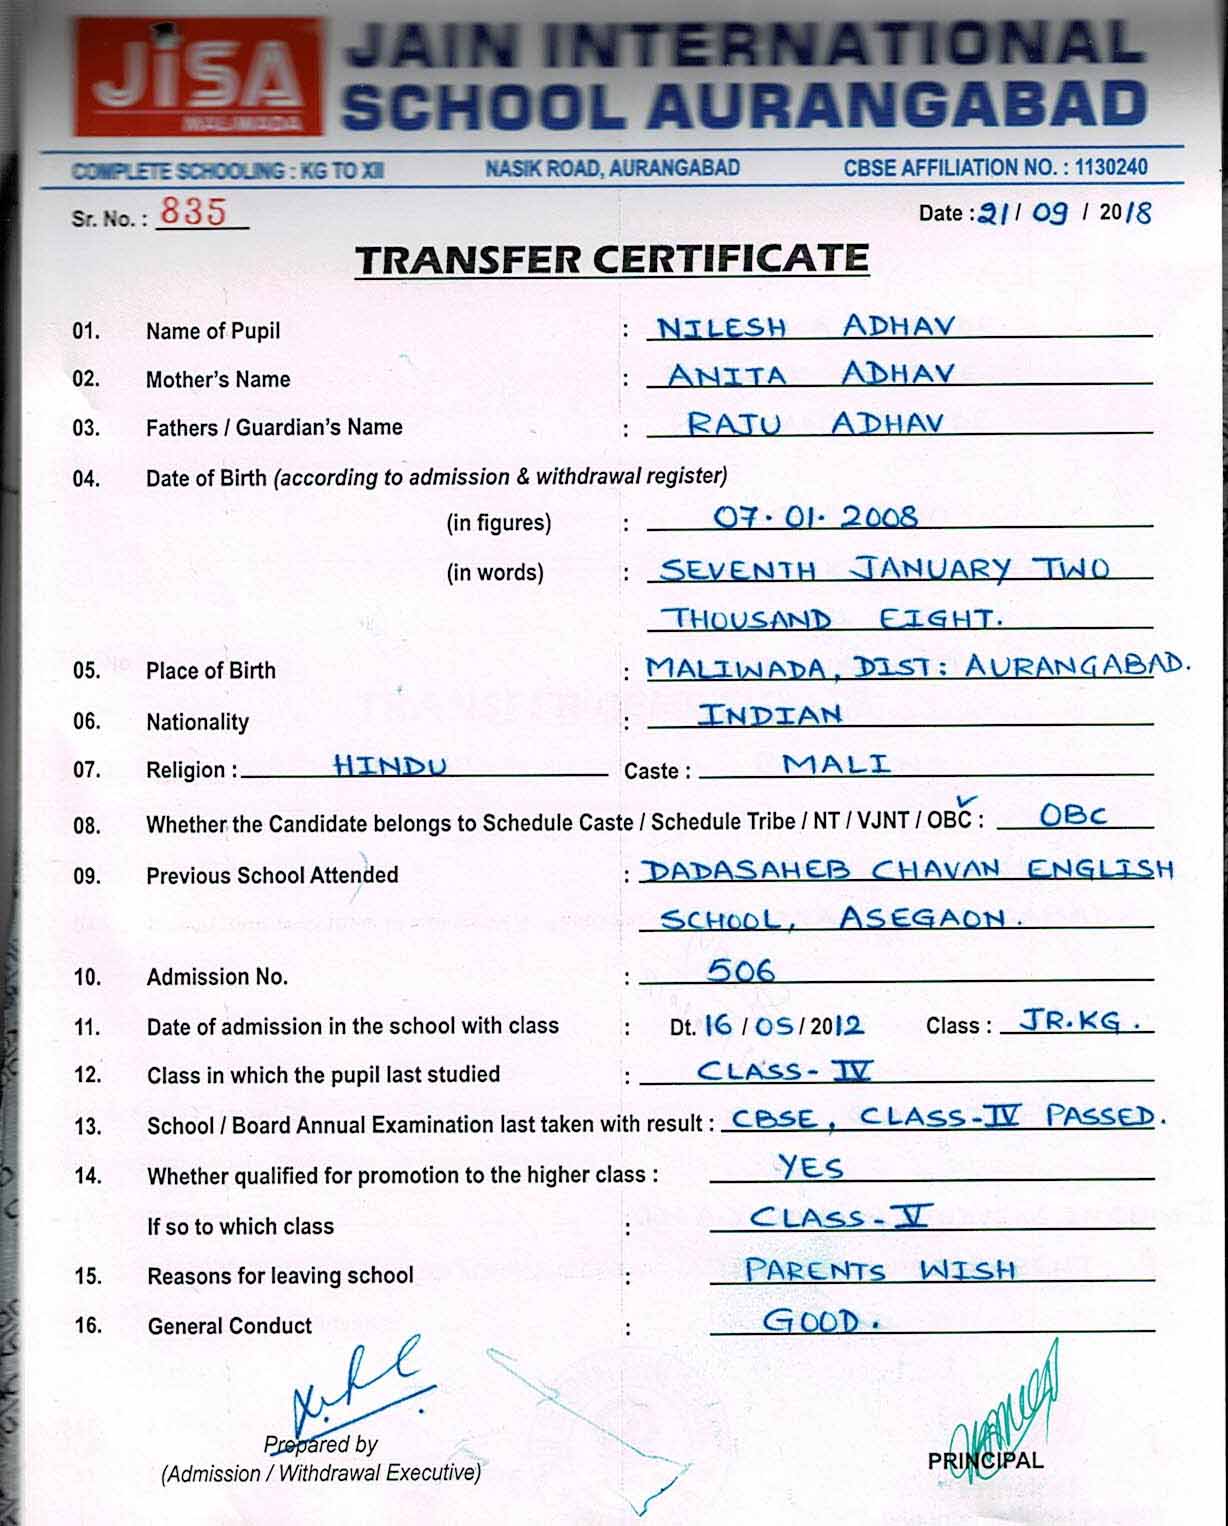 JiSA
MALIWADA
JAIN INTERNATIONAL
SCHOOL AURANGABAD
COMPLETE SCHOOLING : KG TO XII NASIK ROAD, AURANGABAD CBSE AFFILIATION NO. : 1130240
Sr. No. : 835 Date : 21 / 09 / 2018
TRANSFER CERTIFICATE
01. Name of Pupil : NILESH ADHAV
02. Mother's Name : ANITA ADHAV
03. Fathers / Guardian's Name : RAJU ADHAV
04. Date of Birth (according to admission & withdrawal register)
(in figures) : 07.01.2008
(in words) : SEVENTH JANUARY TWO
THOUSAND EIGHT.
05. Place of Birth : MALIWADA, DIST: AURANGABAD.
06. Nationality : INDIAN
07. Religion : HINDU Caste : MALI
08. Whether the Candidate belongs to Schedule Caste / Schedule Tribe / NT / VJNT / OBC : OBC
09. Previous School Attended : DADASAHEB CHAVAN ENGLISH
SCHOOL, ASEGAON.
10. Admission No. : 506
11. Date of admission in the school with class : Dt. 16 / 05 / 2012 Class : JR.KG.
12. Class in which the pupil last studied : CLASS - IV
13. School / Board Annual Examination last taken with result : CBSE, CLASS-IV PASSED.
14. Whether qualified for promotion to the higher class : YES
If so to which class : CLASS - V
15. Reasons for leaving school : PARENTS WISH
16. General Conduct : GOOD.
Prepared by
(Admission / Withdrawal Executive)
PRINCIPAL